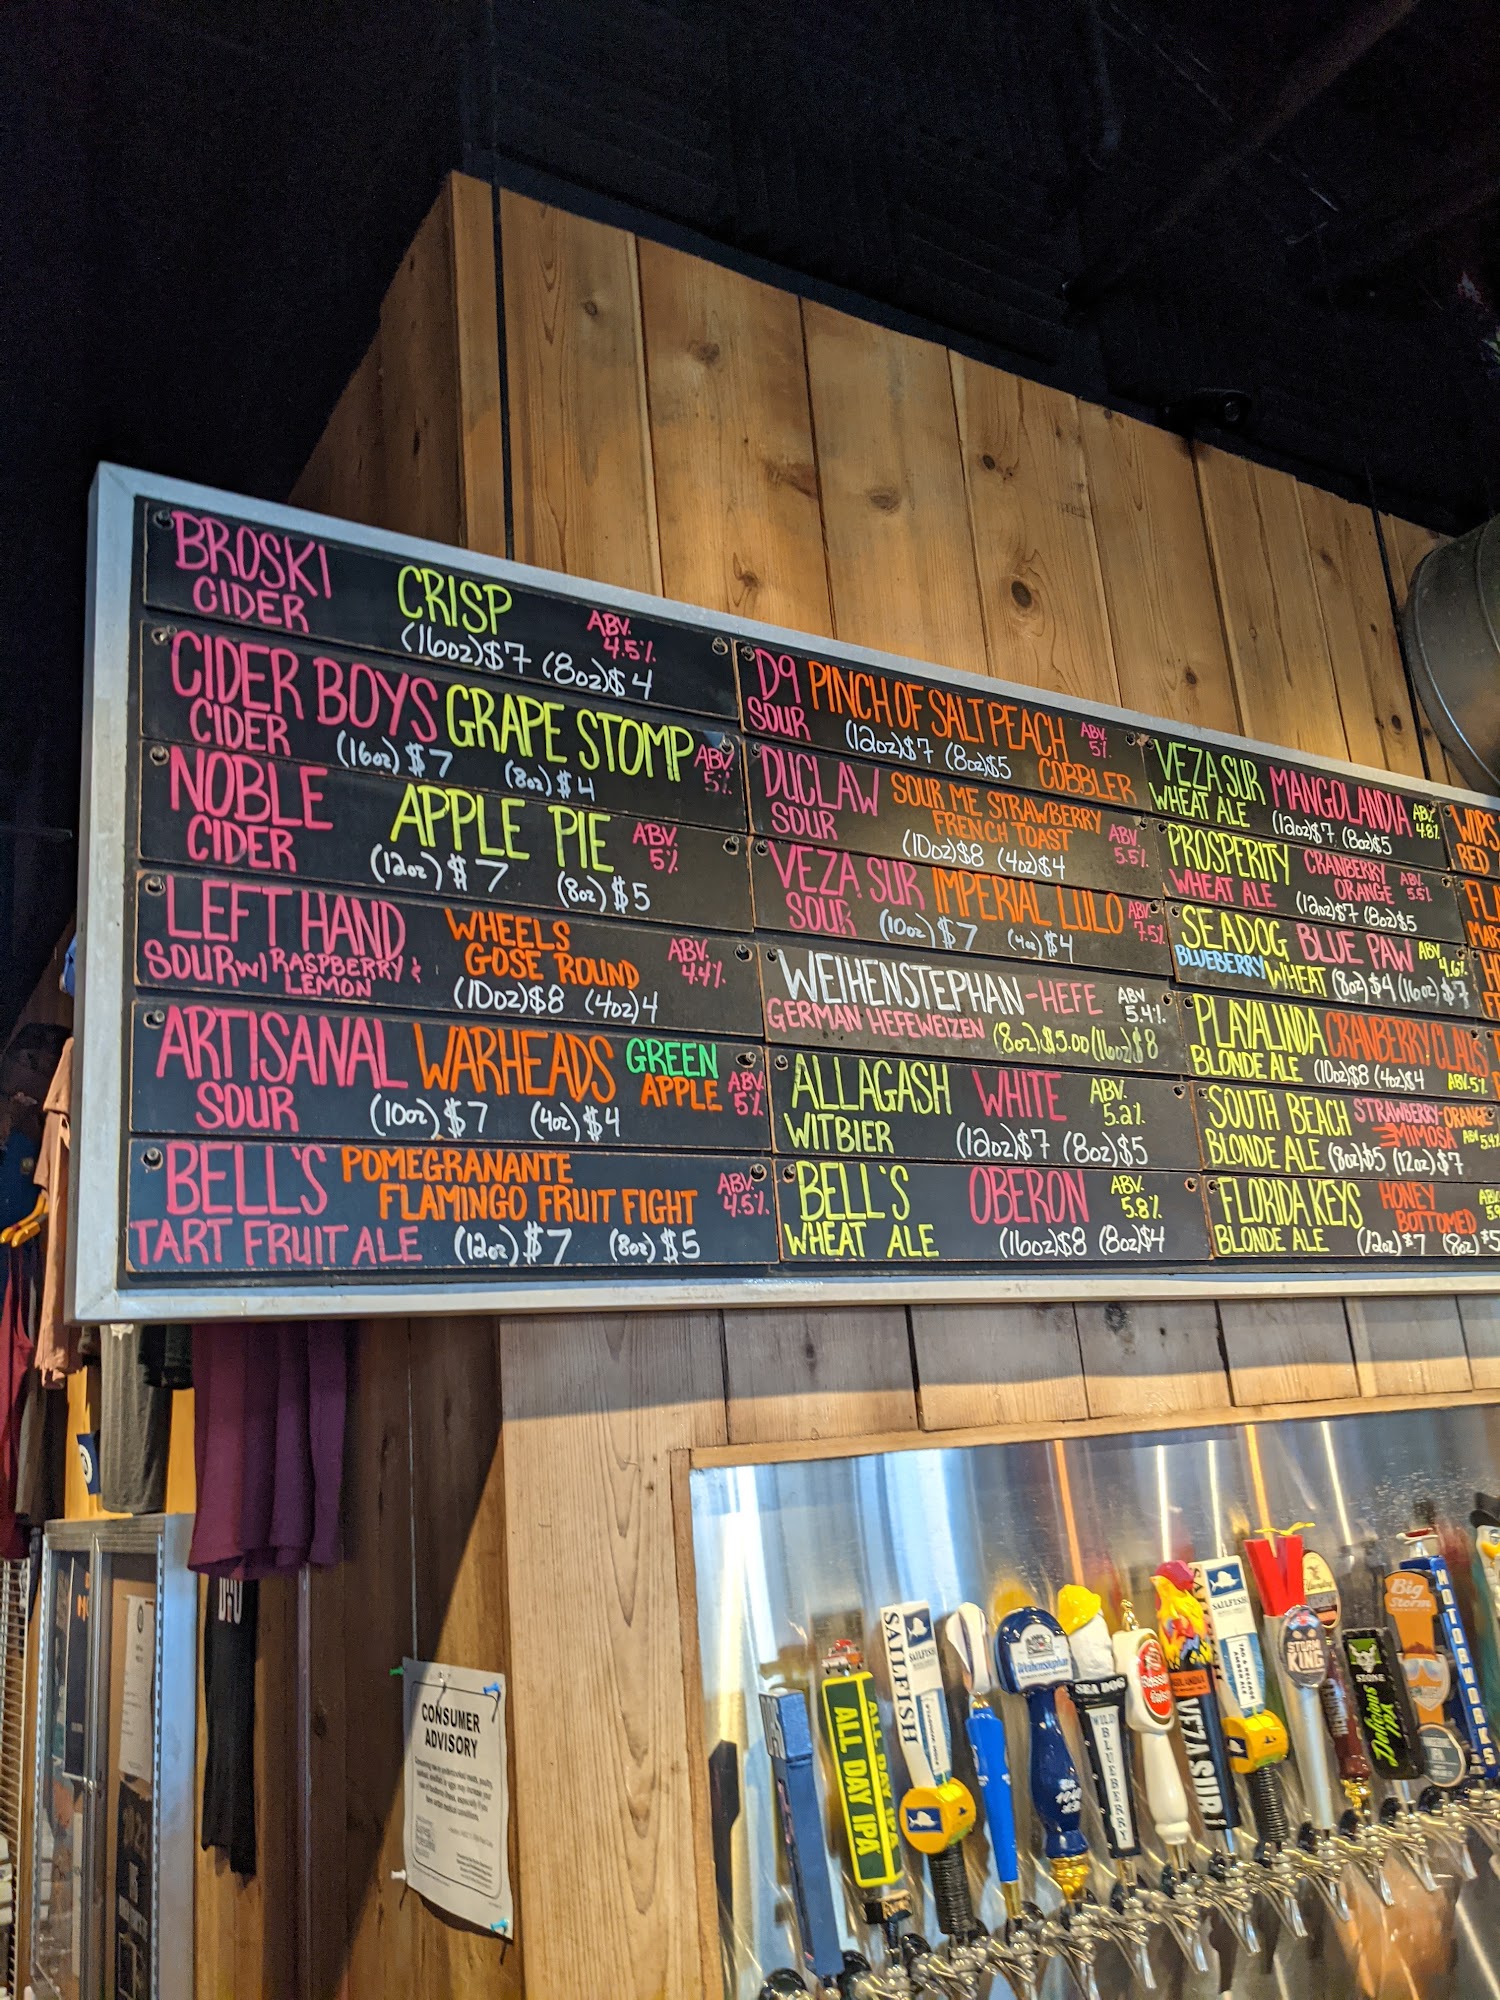 BROSKI CRISP ABV.
CIDER (16oz)$7 (8oz)$4 4.5%
CIDER BOYS GRAPE STOMP ABV.
CIDER (16oz)$7 (8oz)$4 5%
NOBLE APPLE PIE ABV.
CIDER (12oz)$7 (8oz)$5 5%
LEFT HAND WHEELS ABV.
SOUR W/ RASPBERRY & GOSE ROUND 4.4%
LEMON (10oz)$8 (4oz)4
ARTISANAL WARHEADS GREEN APPLE ABV.
SOUR (10oz)$7 (4oz)$4 5%
BELL'S POMEGRANANTE ABV.
FLAMINGO FRUIT FIGHT 4.5%
TART FRUIT ALE (12oz)$7 (8oz)$5
D9 PINCH OF SALT PEACH ABV.
SOUR (12oz)$7 (8oz)$5 COBBLER 5%
DUCLAW SOUR ME STRAWBERRY
SOUR FRENCH TOAST ABV.
(10oz)$8 (4oz)$4 5.5%
VEZA SUR IMPERIAL LULO ABV.
SOUR (10oz)$7 (4oz)$4 7.5%
WEIHENSTEPHAN-HEFE ABV
GERMAN HEFEWEIZEN (8oz)$5.00 (16oz)$8 5.4%
ALLAGASH WHITE ABV.
WITBIER (12oz)$7 (8oz)$5 5.2%
BELL'S OBERON ABV.
WHEAT ALE (16oz)$8 (8oz)$4 5.8%
VEZA SUR MANGOLANDIA ABV
WHEAT ALE (12oz)$7 (8oz)$5 4.8%
PROSPERITY CRANBERRY ABV.
WHEAT ALE ORANGE 5.5%
(12oz)$7 (8oz)$5
SEADOG BLUE PAW ABV
BLUEBERRY WHEAT (8oz)$4 (16oz)$7 4.6%
PLAYALINDA CRANBERRY CLAUS
BLONDE ALE (10oz)$8 (4oz)$4 ABV.5%
SOUTH BEACH STRAWBERRY-ORANGE
MIMOSA ABV
BLONDE ALE (8oz)$5 (12oz)$7
FLORIDA KEYS HONEY
BOTTOMED
BLONDE ALE (12oz)$7 (8oz)$5
RED
CONSUMER
ADVISORY
ALL DAY IPA
ALL DAY IPA
SAILFISH
SAILFISH
Weihenstephan
SEA DOG
WILD BLUEBERRY
VEZA SUR
SAILFISH
STORM
KING
STONE
Delicious
IPA
Big
Storm
MOTORWORKS